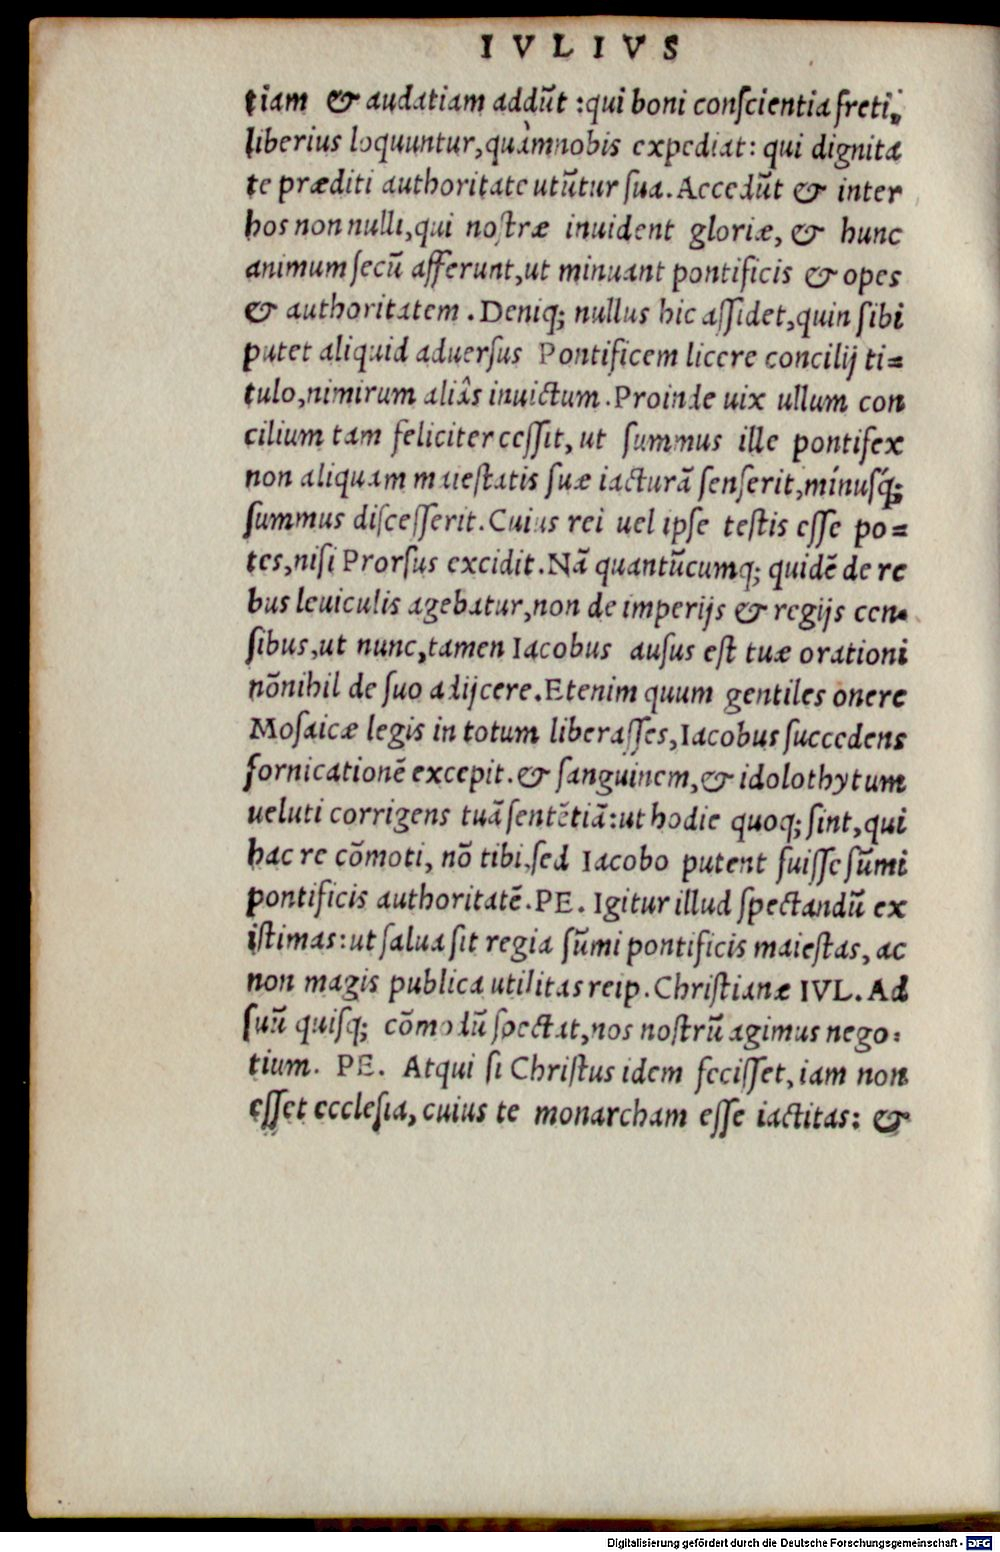 IVLIVS
tiam & audatiam addūt :qui boni conſcientia freti,
liberius loquuntur,quàmnobis expediat: qui dignita
te præditi authoritate utūtur ſua.Accedūt & inter
hos non nulli,qui noſtræ inuident gloriæ, & hunc
animum ſecū afferunt,ut minuant pontificis & opes
& authoritatem .Deniq; nullus hic aſſidet,quin ſibi
putet aliquid aduerſus Pontificem licere concilij ti=
tulo,nimirum aliâs inuictum.Proinde uix ullum con
cilium tam feliciter ceſſit, ut ſummus ille pontifex
non aliquam maieſtatis ſuæ iacturā ſenſerit,mínusq́;
ſummus diſceſſerit.Cuius rei uel ipſe teſtis eſſe po=
tes,niſi Prorſus excidit.Nā quantūcumq; quidē de re
bus leuiculis agebatur,non de imperijs & regijs cen=
ſibus,ut nunc,tamen Iacobus auſus eſt tuæ orationi
nōnihil de ſuo adijcere.Etenim quum gentiles onere
Moſaicæ legis in totum liberaſſes,Iacobus ſuccedens
fornicationē excepit.& ſanguinem,& idolothytum
ueluti corrigens tuā ſentētiā:ut hodie quoq; ſint,qui
hac re cōmoti, nō tibi,ſed Iacobo putent fuiſſe ſūmi
pontificis authoritatē.PE. Igitur illud ſpectandū ex
iſtimas:ut ſalua ſit regia ſūmi pontificis maieſtas, ac
non magis publica utilitas reip.Chriſtianæ IVL.Ad
ſuū quiſq; cōmodū ſpectat,nos noſtrū agimus nego=
tium. PE. Atqui ſi Chriſtus idem feciſſet,iam non
eſſet eccleſia,cuius te monarcham eſſe iactitas: &
Digitalisierung gefördert durch die Deutsche Forschungsgemeinschaft - DFG